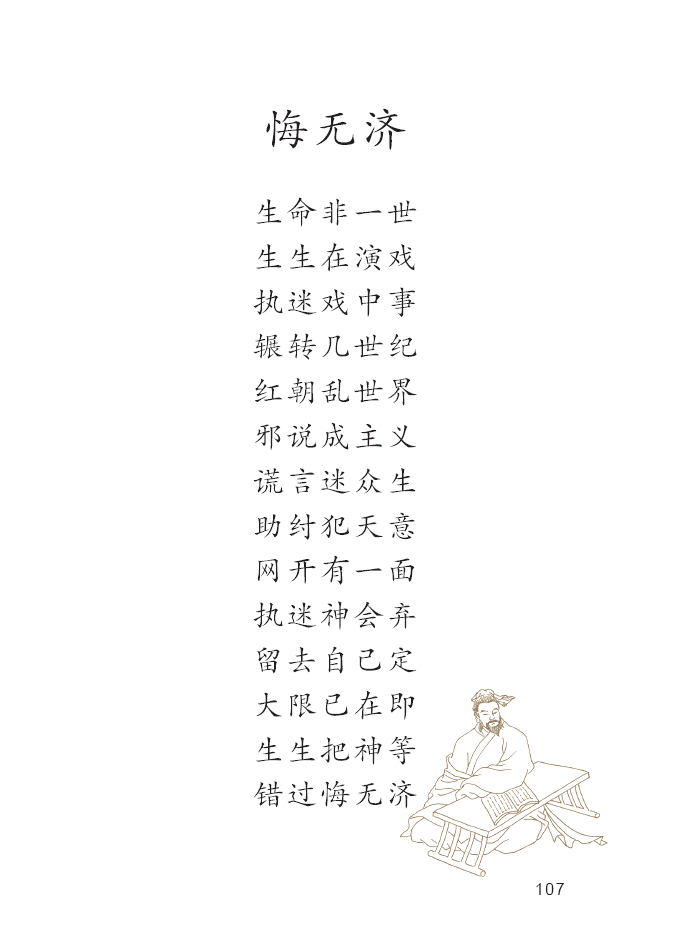 悔无济
生命非一世
生生在演戏
执迷戏中事
辗转几世纪
红朝乱世界
邪说成主义
谎言迷众生
助纣犯天意
网开有一面
执迷神会弃
留去自己定
大限已在即
生生把神等
错过悔无济
107